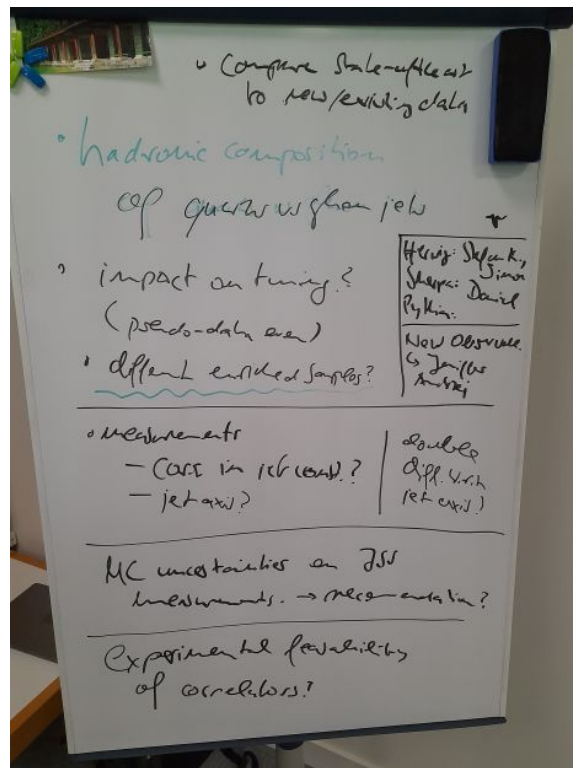 • Compare State-of-the-art
to new/existing data
• hadronic composition
of quark vs gluon jets
• impact on tuning?
(pseudo-data even)
• different enriched samples?
Herwig: Stefan K.,
Simon
Sherpa: Daniel
Pythia:
New Observable
↳ Jennifer
Andrzej
• measurements
- in jet const.?
- jet axis?
double
diff. w.r.t.
jet axis?
MC uncertainties on JSS
measurements. → recommendation?
Experimental feasability
of correlators?